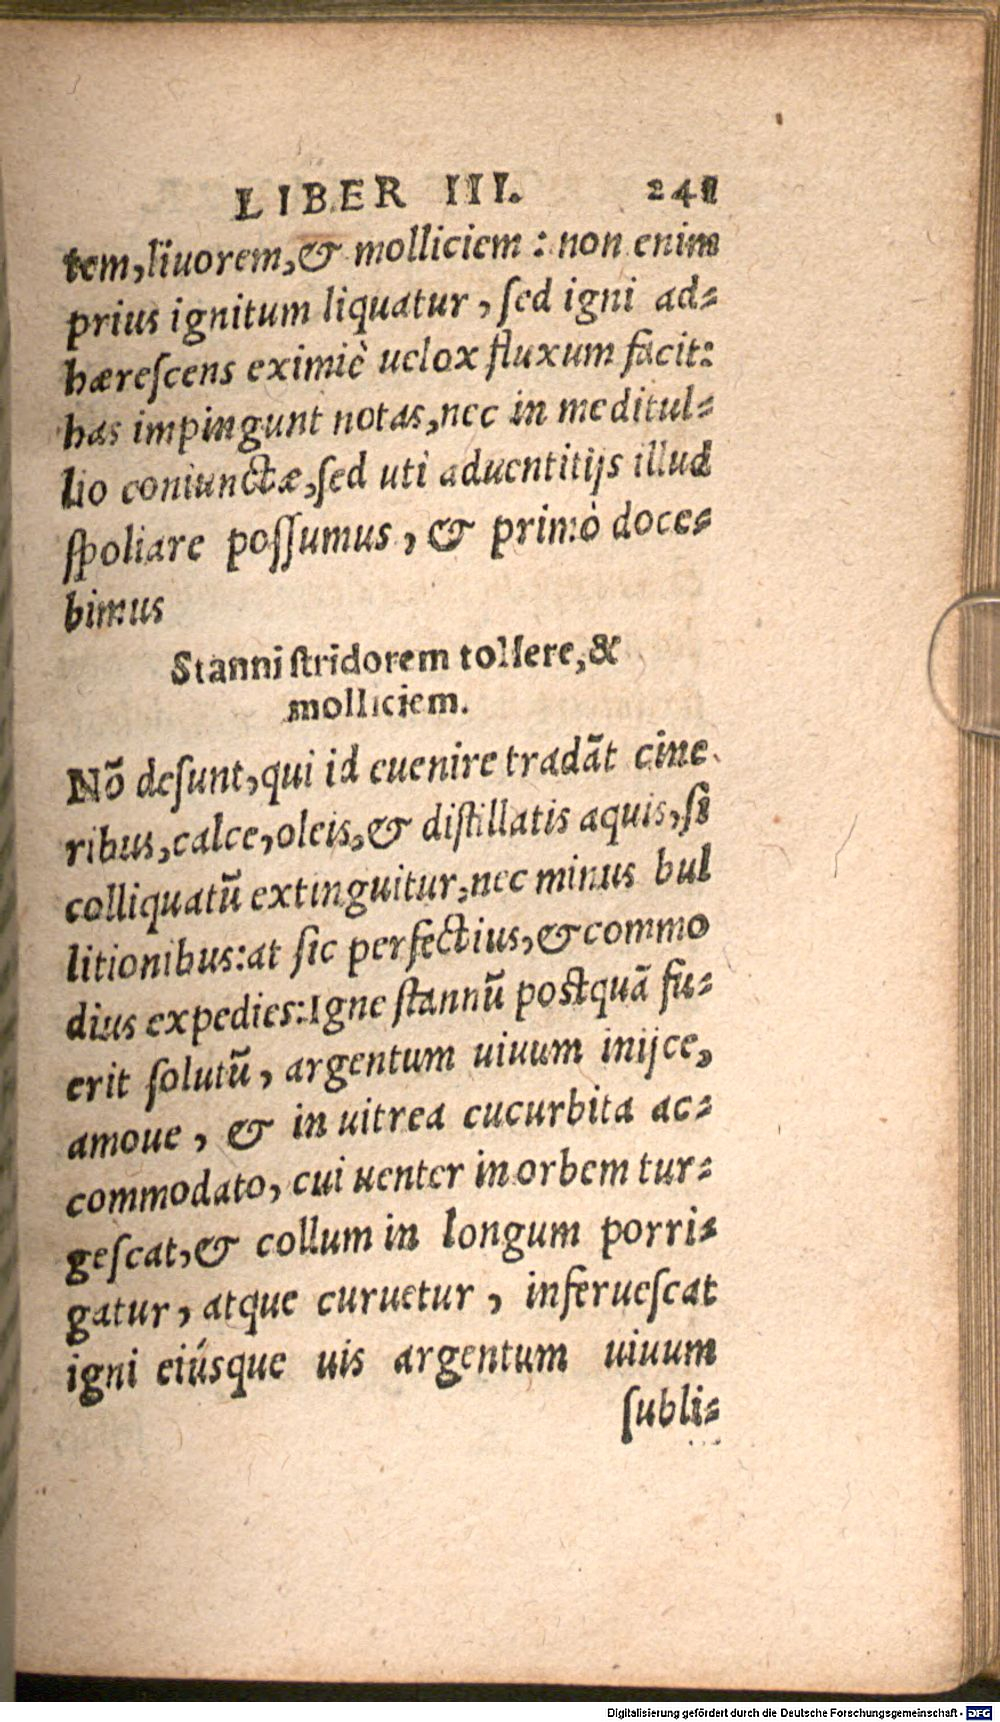 LIBER III. 241
tem, liuorem, & molliciem : non enim
prius ignitum liquatur, sed igni ad-
hærescens eximiè uelox fluxum facit:
has impingunt notas, nec in meditul-
lio coniunctæ, sed uti aduentitijs illud
spoliare possumus, & primò doce-
bimus
Stanni stridorem tollere, &
molliciem.
Nō desunt, qui id euenire tradāt cine
ribus, calce, oleis, & distillatis aquis, si
colliquatū extinguitur, nec minus bul
litionibus: at sic perfectius, & commo
dius expedies: Igne stannū postquā fu-
erit solutū, argentum uiuum inijce,
amoue, & in uitrea cucurbita ac-
commodato, cui uenter in orbem tur-
gescat, & collum in longum porri-
gatur, atque curuetur, inferuescat
igni eiúsque uis argentum uiuum
subli-
Digitalisierung gefördert durch die Deutsche Forschungsgemeinschaft - DFG